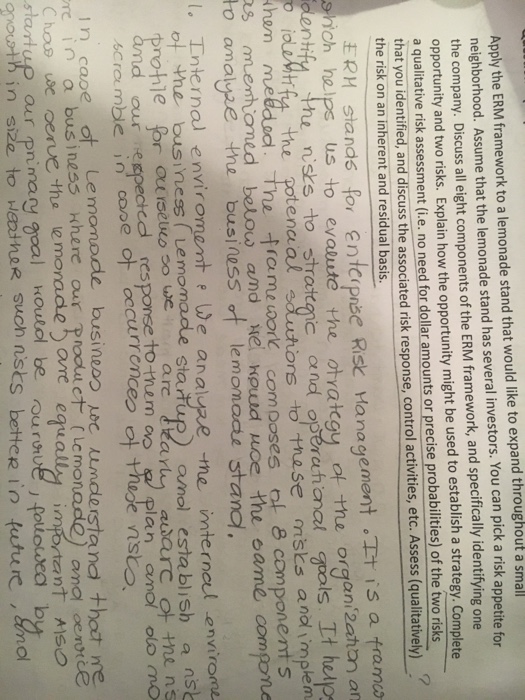 Apply the ERM framework to a lemonade stand that would like to expand throughout a small
neighborhood. Assume that the lemonade stand has several investors. You can pick a risk appetite for
the company. Discuss all eight components of the ERM framework, and specifically identifying one
opportunity and two risks. Explain how the opportunity might be used to establish a strategy. Complete
a qualitative risk assessment (i.e. no need for dollar amounts or precise probabilities) of the two risks ?
that you identified, and discuss the associated risk response, control activities, etc. Assess (qualitatively)
the risk on an inherent and residual basis.
ERM stands for Enterprise Risk Management. It is a frame
which helps us to evalute the strategy of the organization an
identify the risks to strategic and operational goals It helps
to identify the potencial solutions to these risks and implem
then needed. The framework composes of 8 components
as mentioned below and we would use the same compone
to analyze the business of lemonade stand.
1. Internal enviroment: We analyze the internal envirome
of the business (Lemomade startup) and establish a risk
profile for ourselves so we are clearly aware of the ris
and our expected response to them as a plan and do no
scramble in case of occurrences of those risks.
In case of Lemonade business we understand that we
are in a business where our product (lemonade) and service
(how we serve the lemonade) are equally important Also
startup our primary goal would be survive, followed by
growth in size to weather such risks better in future, and